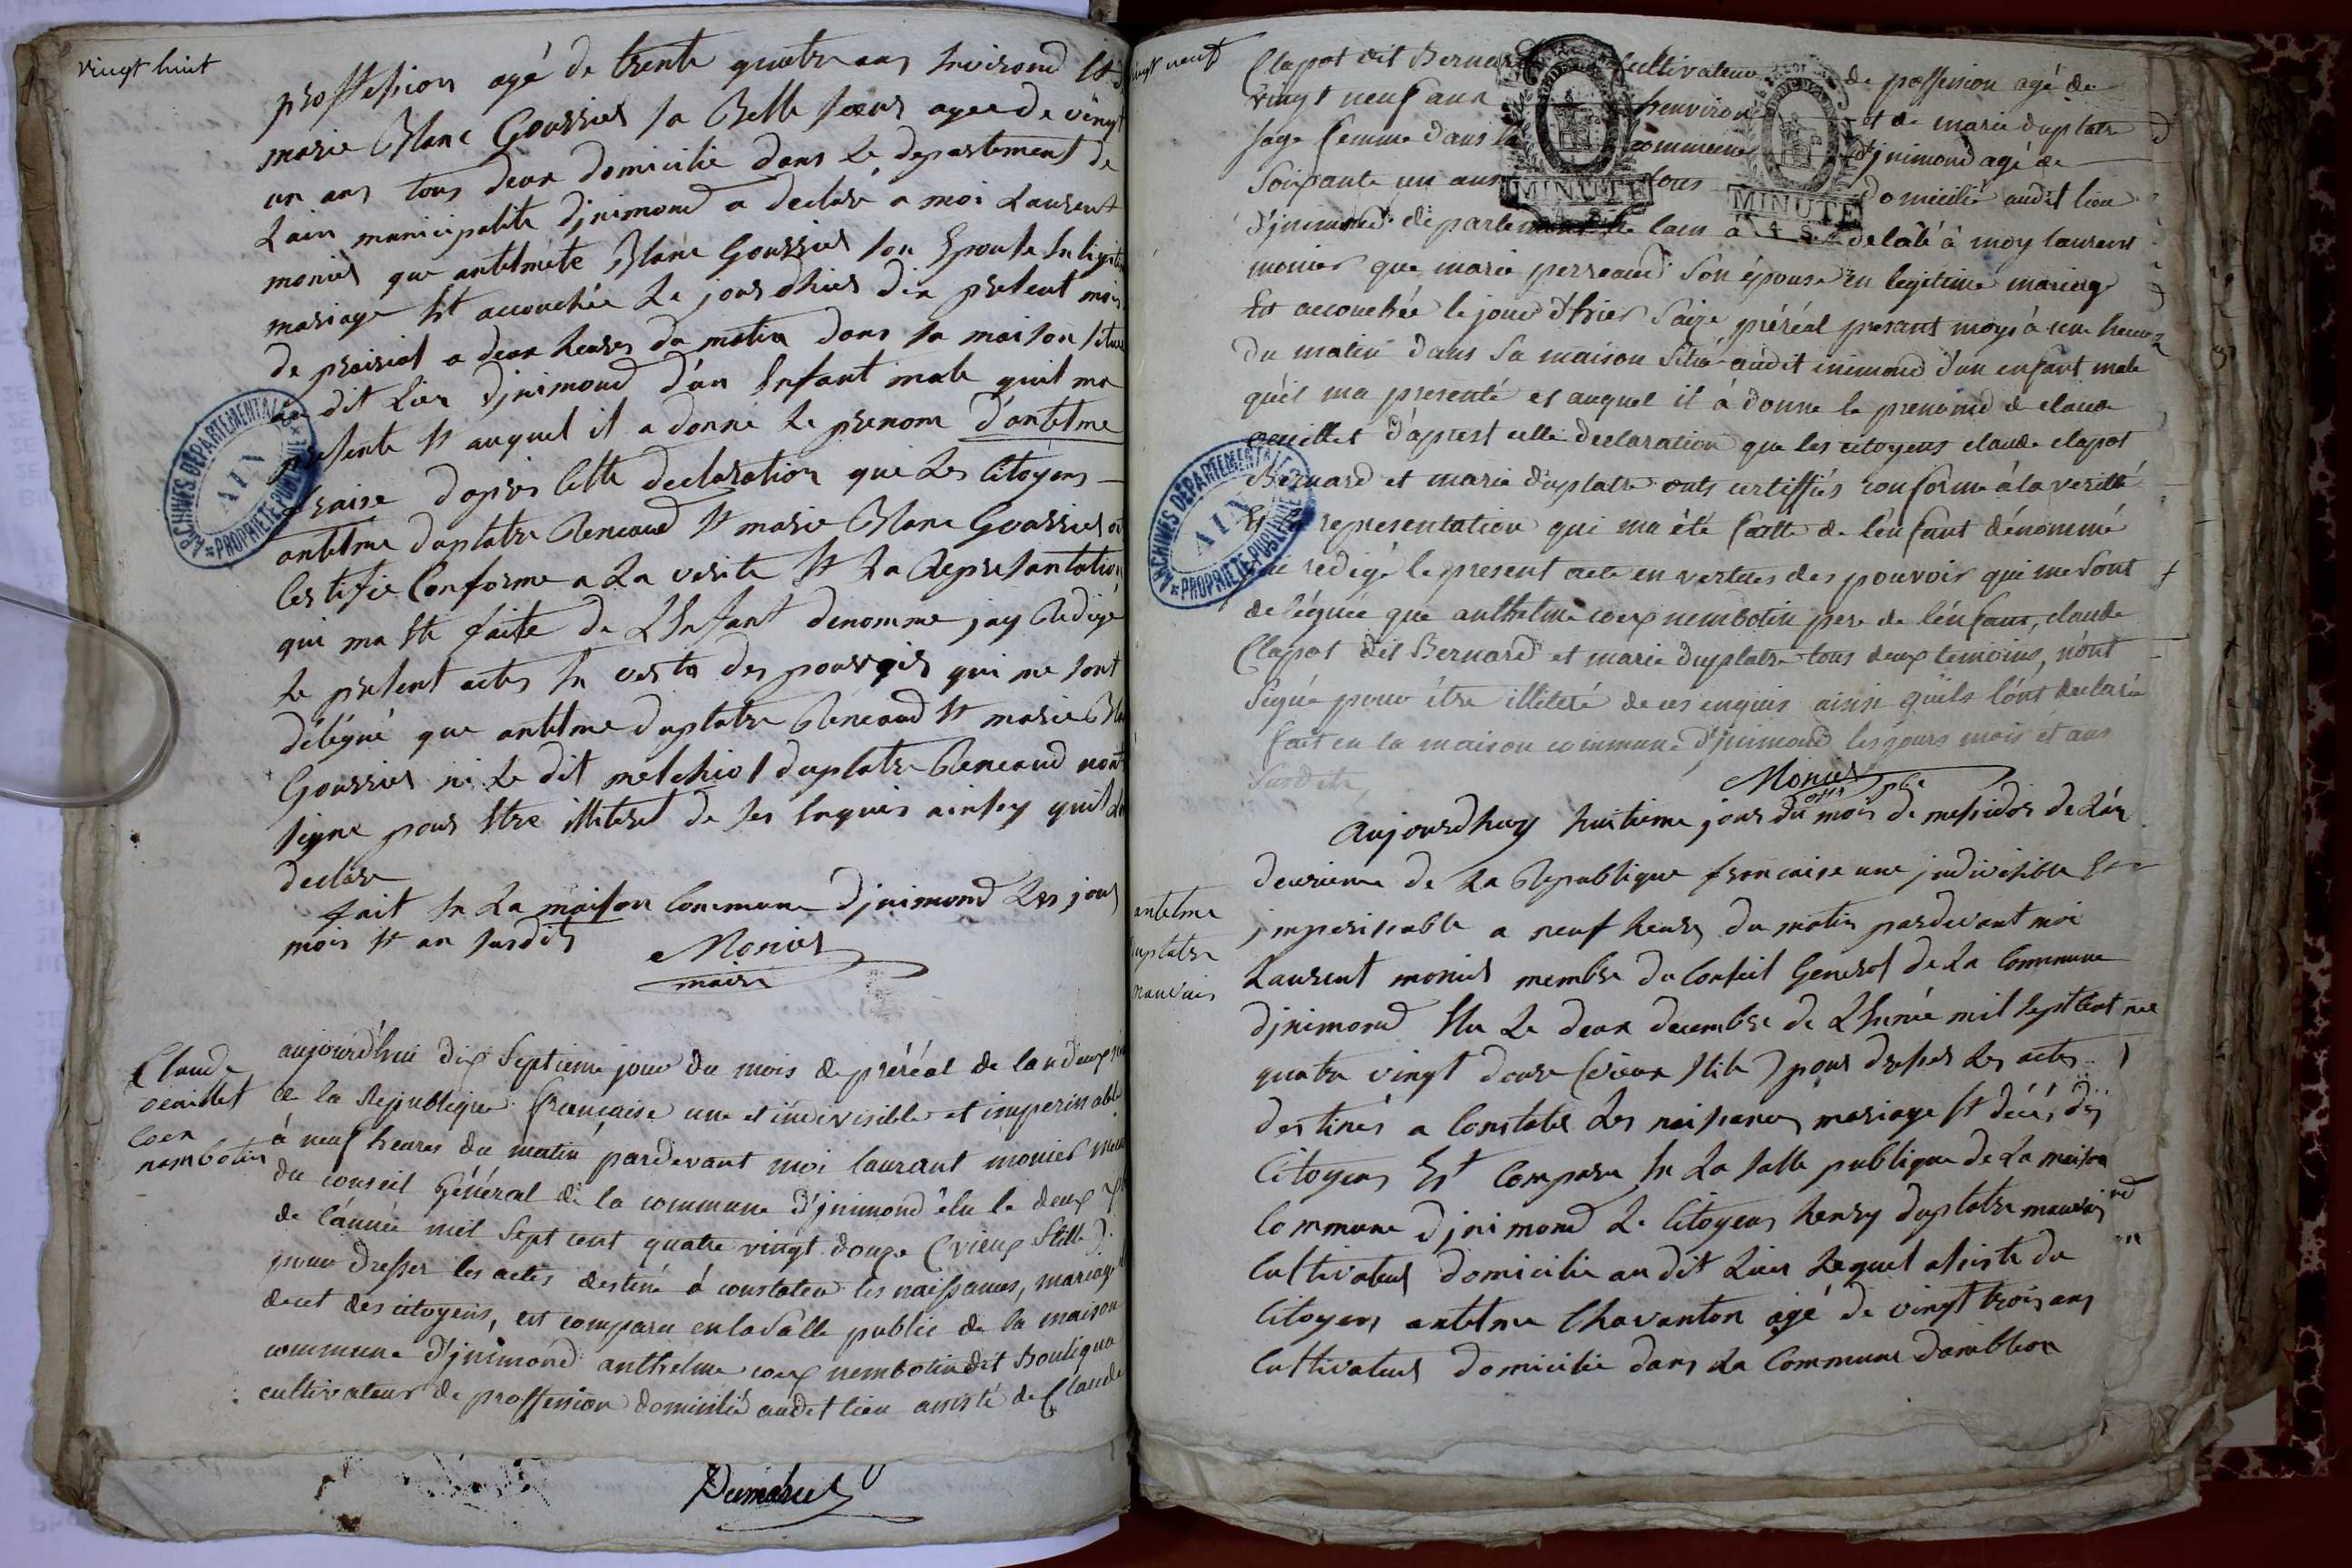 vingt huit
proffesion agé de trente quatre ans henvirond et
marie Blanc Goussier sa Belle soeur agee de vingt
un ans tous deux domicilie dans Le departement de
Lain municipalite djnimond a declaré a moi Laurent
monier que antelmete Blanc Goussier son Epouse En legitim
mariage Et accouchée Le jour dhier dix present mois
de prairial a deux heures du matin dans sa maison situe
au dit Lieu djnimond d'un Enfant male quil ma
presente Et auquel il a donne Le prenom d'antelme
fraise dapres Cette declaration que Les Citoyens
antelme duplatre Rencaud Et marie Blanc Goussier ont
Certifie Conforme a La verite Et La Representation
qui ma Ete faite de L'Enfant denomme jay Redigé
Le present actes En vertu des pouvoirs qui me sont
délégué que antelme duplatre Rencaud Et marie Blan
Goussier ni Le dit melchiot duplatre Rencaud nont
signe pour Etre illiteret de ses Enquis ainsy quil
declare
fait En La maison Commune djnimond Les jour
mois Et an susdits
Monier
maire
Claude
oeuillet
Coex
nembotin
aujourd'hui dix septieme jour du mois de préréal de lan deux
de la Republique française une et indivisible et imperissable
à neuf heures du matin pardevant moi laurant monier mem
du conseil Général de la commune d'jnimond élu le deux xbre
de l'année mil sept cent quatre vingt douze (vieux stille)
pour dresser les actes destiné à constater les naissances, mariage
decet des citoyens, est comparu en la salle public de la maison
commune d'jnimond anthelme coex nembotin dit Bouligna
cultivateur de proffession domicilié audit lieu assisté de Claude
Dumarest
ARCHIVES DEPARTEMENTALES
AIN
PROPRIETE PUBLIQUE
vingt neuf
Clapot dit Bernard Cultivateur de possession agé de
vingt neuf ans henviron et de marie duplatre
sage femme dans la commune d'jnimond agé de
soixante un ans tous domicilié audit lieu
d'jnimond departement de lain à delaré à moy laurent
monier que marie perreaud son épouse en legitime mariage
Est accouchée le jour d'hier saize préréal presant moys à une heure
du matin dans sa maison situé audit inimond d'un enfant male
qu'il ma presenté et auquel il à donne le prenomd de claude
oeuillet d'aprest cette declaration que les citoyens claude clapot
Bernard et marie duplatre onts certiffiés conforme à la verité
Et la representation qui ma été faitte de l'enfant dénommé
j'ai rédigé le present acte en vertues des pouvoir qui me sont
deléguée que anthelme coex nembotin pere de l'énfant, claude
Clapot dit Bernard et marie duplatre tous deux temoins, n'ont
signé pour être illiteté de ces enquis ainsi qu'ils l'ont declarée
fait en la maison commune d'jnimond les jours mois et ans
susdits,
Monier
offi plic
MINUTE
MINUTE
4 S.
ARCHIVES DEPARTEMENTALES
AIN
PROPRIETE PUBLIQUE
antelme
duplatre
mauvais
Aujourdhuy huitieme jour du mois de messidor de L'an
deuxieme de La Republique francaise une jndivisible Et
jmperissable a neuf heures du matin pardevant moi
Laurent monier membre du Conseil General de La Commune
djnimond Elu Le deux decembre de L'Année mil sept Cent
quatre vingt douze (vieux stile) pour dresser Les actes
destinés a Constater Les naissances mariage Et décés des
Citoyens Est Comparu En La salle publique de La maison
Commune djnimond Le Citoyens henry duplatre mauvais
Cultivateur domicilie au dit Lieu Lequel assiste du
Citoyens antelme Chavanton agé de vingt trois ans
Cultivateur domicilie dans La Commune dambleon